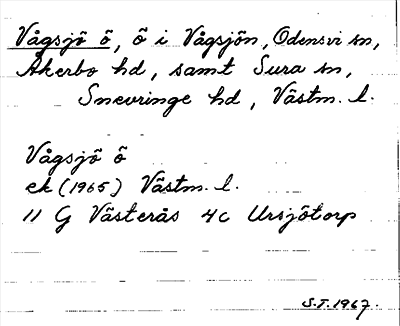 Vågsjö ö, ö i Vågsjön, Odensvi sn,
Åkerbo hd, samt Sura sn,
Snevringe hd, Västm. l.
Vågsjö ö
ek (1965) Västm. l.
11 G Västerås 4c Ursjötorp
S.T. 1967.